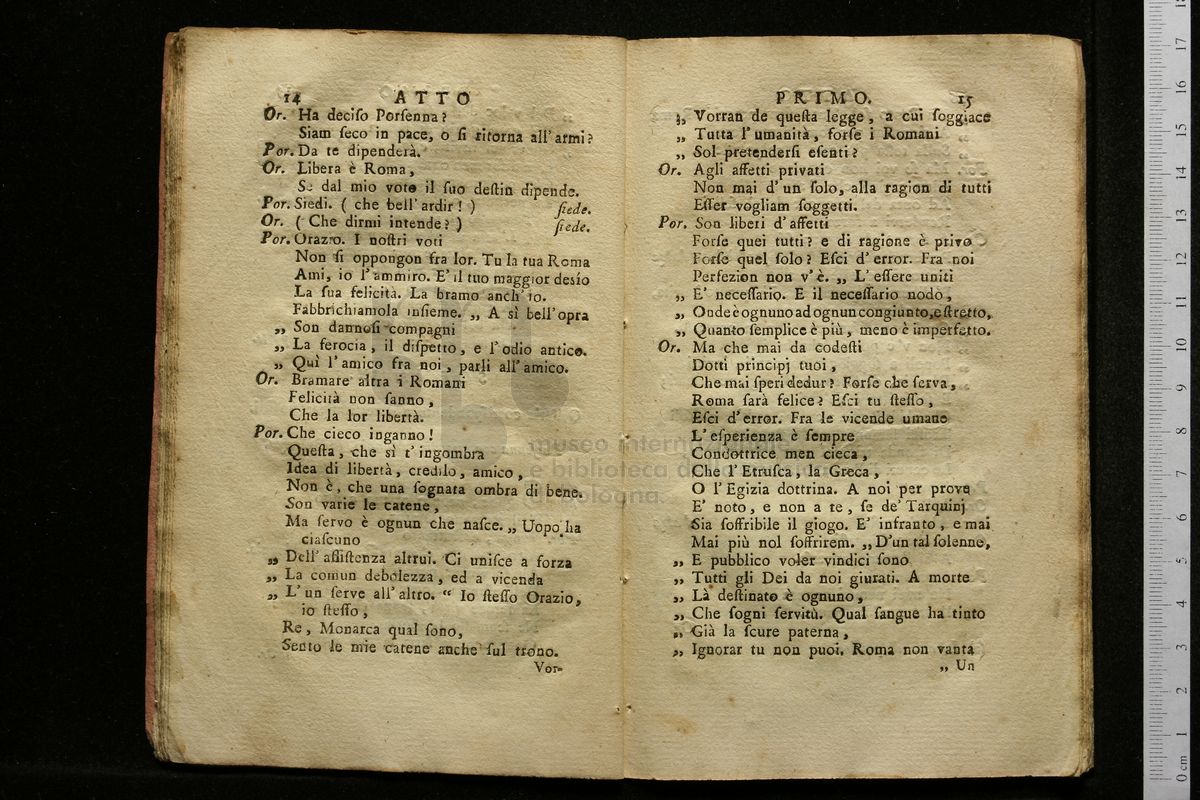 14 ATTO
Or. Ha deciſo Porſenna?
Siam ſeco in pace, o ſi ritorna all' armi?
Por. Da te dipenderà.
Or. Libera è Roma,
Se dal mio voto il ſuo deſtin dipende.
Por. Siedi. ( che bell' ardir! ) ſiede.
Or. ( Che dirmi intende? ) ſiede.
Por. Orazio. I noſtri voti
Non ſi oppongon fra lor. Tu la tua Roma
Ami, io l' ammiro. E' il tuo maggior desío
La ſua felicità. La bramo anch' io.
Fabbrichiamola inſieme. „ A sì bell' opra
„ Son dannoſi compagni
„ La ferocia, il diſpetto, e l' odio antico.
„ Quì l' amico fra noi, parli all' amico.
Or. Bramare altra i Romani
Felicità non ſanno,
Che la lor libertà.
Por. Che cieco inganno!
Queſta, che sì t' ingombra
Idea di libertà, credilo, amico,
Non è, che una ſognata ombra di bene.
Son varie le catene,
Ma ſervo è ognun che naſce. „ Uopo ha
ciaſcuno
„ Dell' aſſiſtenza altrui. Ci uniſce a forza
„ La comun debolezza, ed a vicenda
„ L' un ſerve all' altro. “ Io ſteſſo Orazio,
io ſteſſo,
Re, Monarca qual ſono,
Sento le mie catene anche ſul trono.
Vor-
PRIMO. 15
„ Vorran de queſta legge, a cui ſoggiace
„ Tutta l' umanità, forſe i Romani
„ Sol pretenderſi eſenti?
Or. Agli affetti privati
Non mai d' un ſolo, alla ragion di tutti
Eſſer vogliam ſoggetti.
Por. Son liberi d' affetti
Forſe quei tutti? e di ragione è privo
Forſe quel ſolo? Eſci d' error. Fra noi
Perfezion non v' è. „ L' eſſere uniti
„ E' neceſſario. E il neceſſario nodo,
„ Onde è ognuno ad ognun congiunto, e ſtretto,
„ Quanto ſemplice è più, meno è imperfetto.
Or. Ma che mai da codeſti
Dotti principj tuoi,
Che mai ſperi dedur? Forſe che ſerva,
Roma ſarà felice? Eſci tu ſteſſo,
Eſci d' error. Fra le vicende umane
L' eſperienza è ſempre
Condottrice men cieca,
Che l' Etruſca, la Greca,
O l' Egizia dottrina. A noi per prova
E' noto, e non a te, ſe de' Tarquinj
Sia ſoffribile il giogo. E' infranto, e mai
Mai più nol ſoffrirem. „ D' un tal ſolenne,
„ E pubblico voler vindici ſono
„ Tutti gli Dei da noi giurati. A morte
„ Là deſtinato è ognuno,
„ Che ſogni ſervitù. Qual ſangue ha tinto
„ Già la ſcure paterna,
„ Ignorar tu non puoi. Roma non vanta
„ Un
museo internazionale
e biblioteca della
di Bologna
0 cm 1 2 3 4 5 6 7 8 9 10 11 12 13 14 15 16 17 18